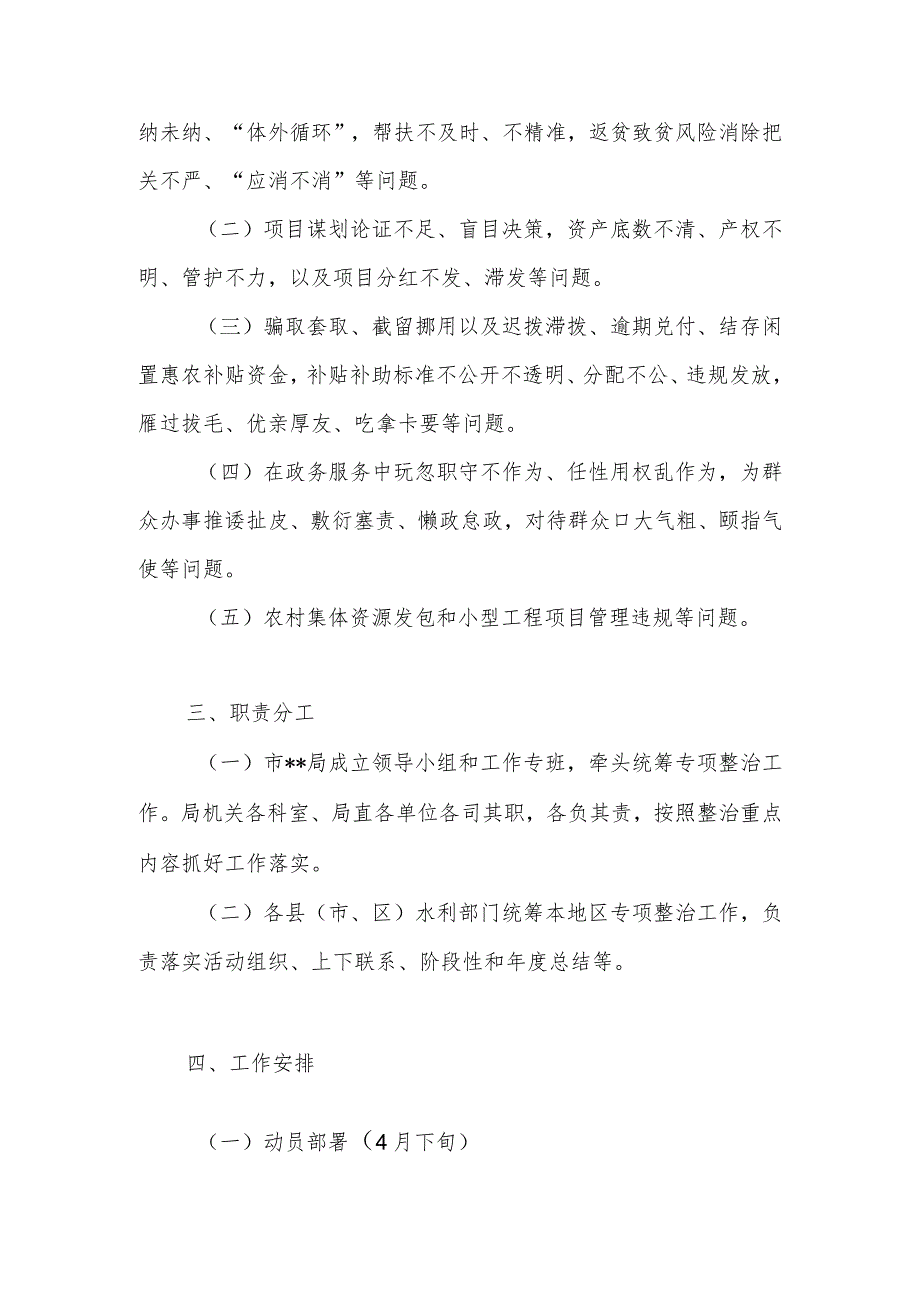 纳未纳、“体外循环”，帮扶不及时、不精准，返贫致贫风险消除把
关不严、“应消不消”等问题。
（二）项目谋划论证不足、盲目决策，资产底数不清、产权不
明、管护不力，以及项目分红不发、滞发等问题。
（三）骗取套取、截留挪用以及迟拨滞拨、逾期兑付、结存闲
置惠农补贴资金，补贴补助标准不公开不透明、分配不公、违规发放，
雁过拔毛、优亲厚友、吃拿卡要等问题。
（四）在政务服务中玩忽职守不作为、任性用权乱作为，为群
众办事推诿扯皮、敷衍塞责、懒政怠政，对待群众口大气粗、颐指气
使等问题。
（五）农村集体资源发包和小型工程项目管理违规等问题。
三、职责分工
（一）市**局成立领导小组和工作专班，牵头统筹专项整治工
作。局机关各科室、局直各单位各司其职，各负其责，按照整治重点
内容抓好工作落实。
（二）各县（市、区）水利部门统筹本地区专项整治工作，负
责落实活动组织、上下联系、阶段性和年度总结等。
四、工作安排
（一）动员部署（4月下旬）